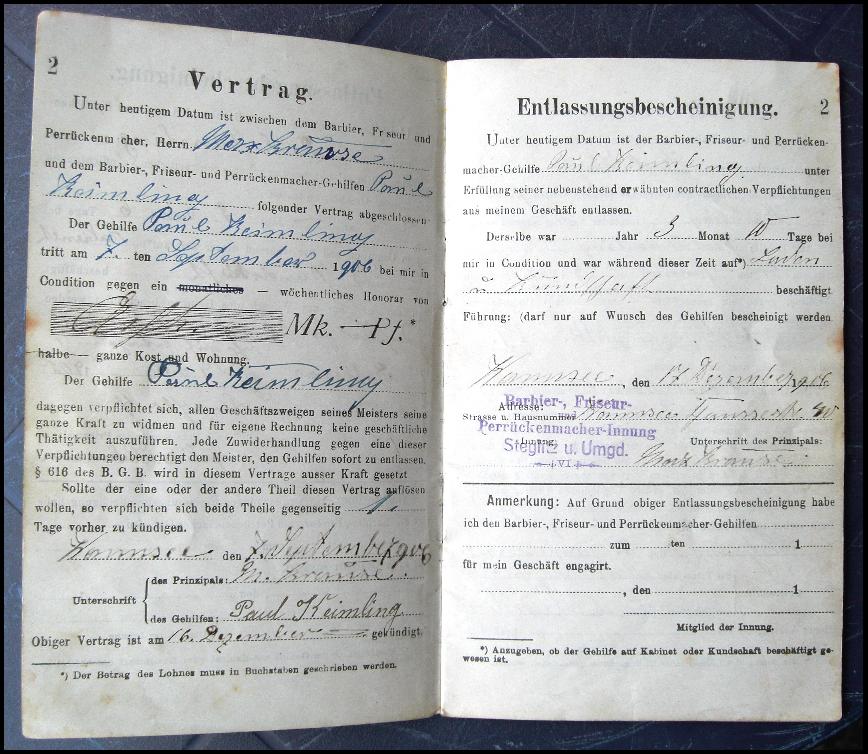 2
Vertrag.
Unter heutigem Datum ist zwischen dem Barbier, Friseur und
Perrückenm cher, Herrn Max Krause
und dem Barbier-, Friseur- und Perrückenmacher-Gehilfen Paul
Keimling folgender Vertrag abgeschlossen
Der Gehilfe Paul Keimling
tritt am 7. ten September 1906 bei mir in
Condition gegen ein monatliches — wöchentliches Honorar von
Mk. — Pf.*
halbe — ganze Kost und Wohnung.
Der Gehilfe Paul Keimling
dagegen verpflichtet sich, allen Geschäftszweigen seines Meisters seine
ganze Kraft zu widmen und für eigene Rechnung keine geschäftliche
Thätigkeit auszuführen. Jede Zuwiderhandlung gegen eine dieser
Verpflichtungen berechtigt den Meister, den Gehilfen sofort zu entlassen.
§ 616 des B. G. B. wird in diesem Vertrage ausser Kraft gesetzt
Sollte der eine oder der andere Theil diesen Vertrag auflösen
wollen, so verpflichten sich beide Theile gegenseitig 1.
Tage vorher zu kündigen.
Wannsee den 7. September 1906
des Prinzipals: M. Krause.
Unterschrift
des Gehilfen: Paul Keimling
Obiger Vertrag ist am 16. Dezember gekündigt.
*) Der Betrag des Lohnes muss in Buchstaben geschrieben werden.
2
Entlassungsbescheinigung.
Unter heutigem Datum ist der Barbier-, Friseur- und Perrücken-
macher-Gehilfe Paul Keimling unter
Erfüllung seiner nebenstehend erwähnten contractlichen Verpflichtungen
aus meinem Geschäft entlassen.
Derselbe war Jahr 3 Monat 10 Tage bei
mir in Condition und war während dieser Zeit auf*) Laden
u Kundschaft beschäftigt
Führung: (darf nur auf Wunsch des Gehilfen bescheinigt werden
Wannsee, den 17 Dezember 1906
Barbier-, Friseur-
Adresse:
Strasse u. Hausnummer Wannsee
Perrückenmacher-Innung
Innung: Unterschrift des Prinzipals:
Steglitz u. Umgd.
VI Max Krause.
Anmerkung: Auf Grund obiger Entlassungsbescheinigung habe
ich den Barbier-, Friseur- und Perrückenmacher-Gehilfen
zum ten 1
für mein Geschäft engagirt.
, den 1
Mitglied der Innung.
*) Anzugeben, ob der Gehilfe auf Kabinet oder Kundschaft beschäftigt ge-
wesen ist.